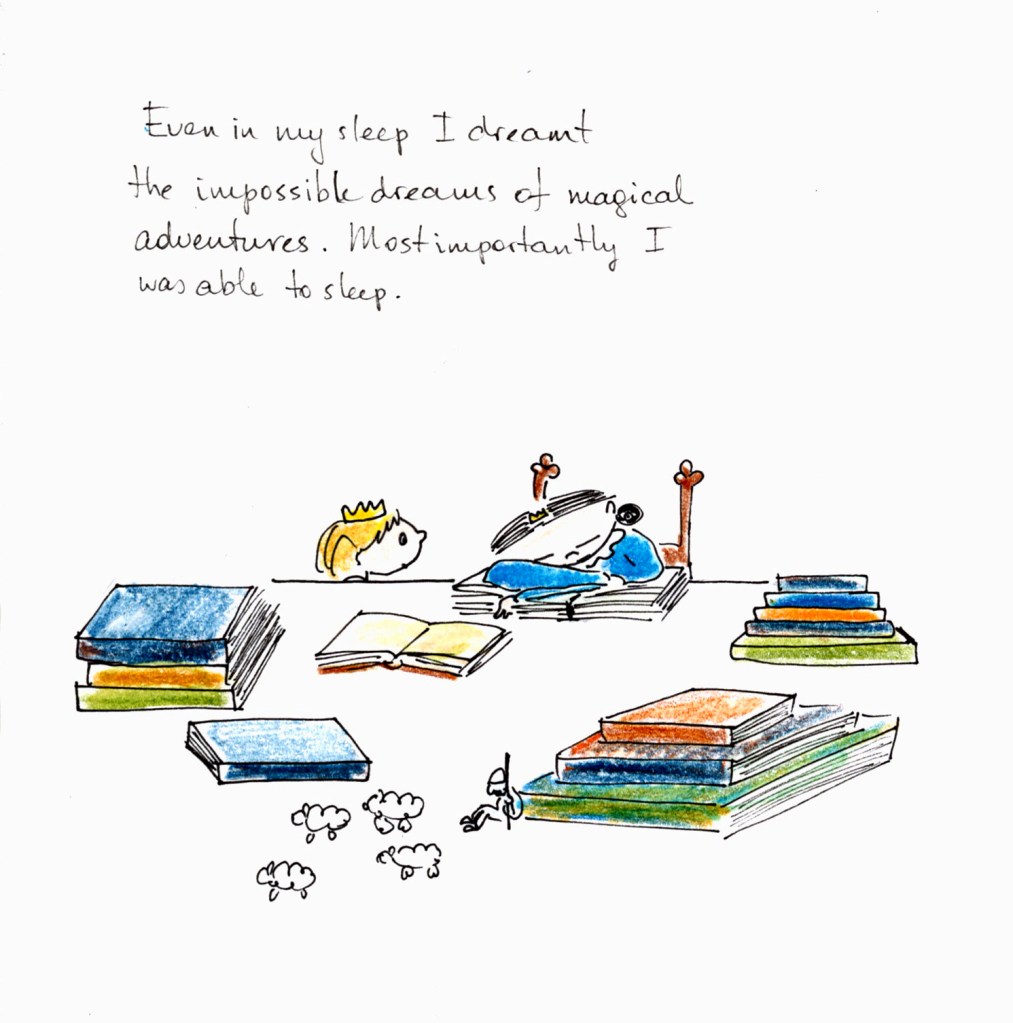 Even in my sleep I dreamt
the impossible dreams of magical
adventures. Most importantly I
was able to sleep.